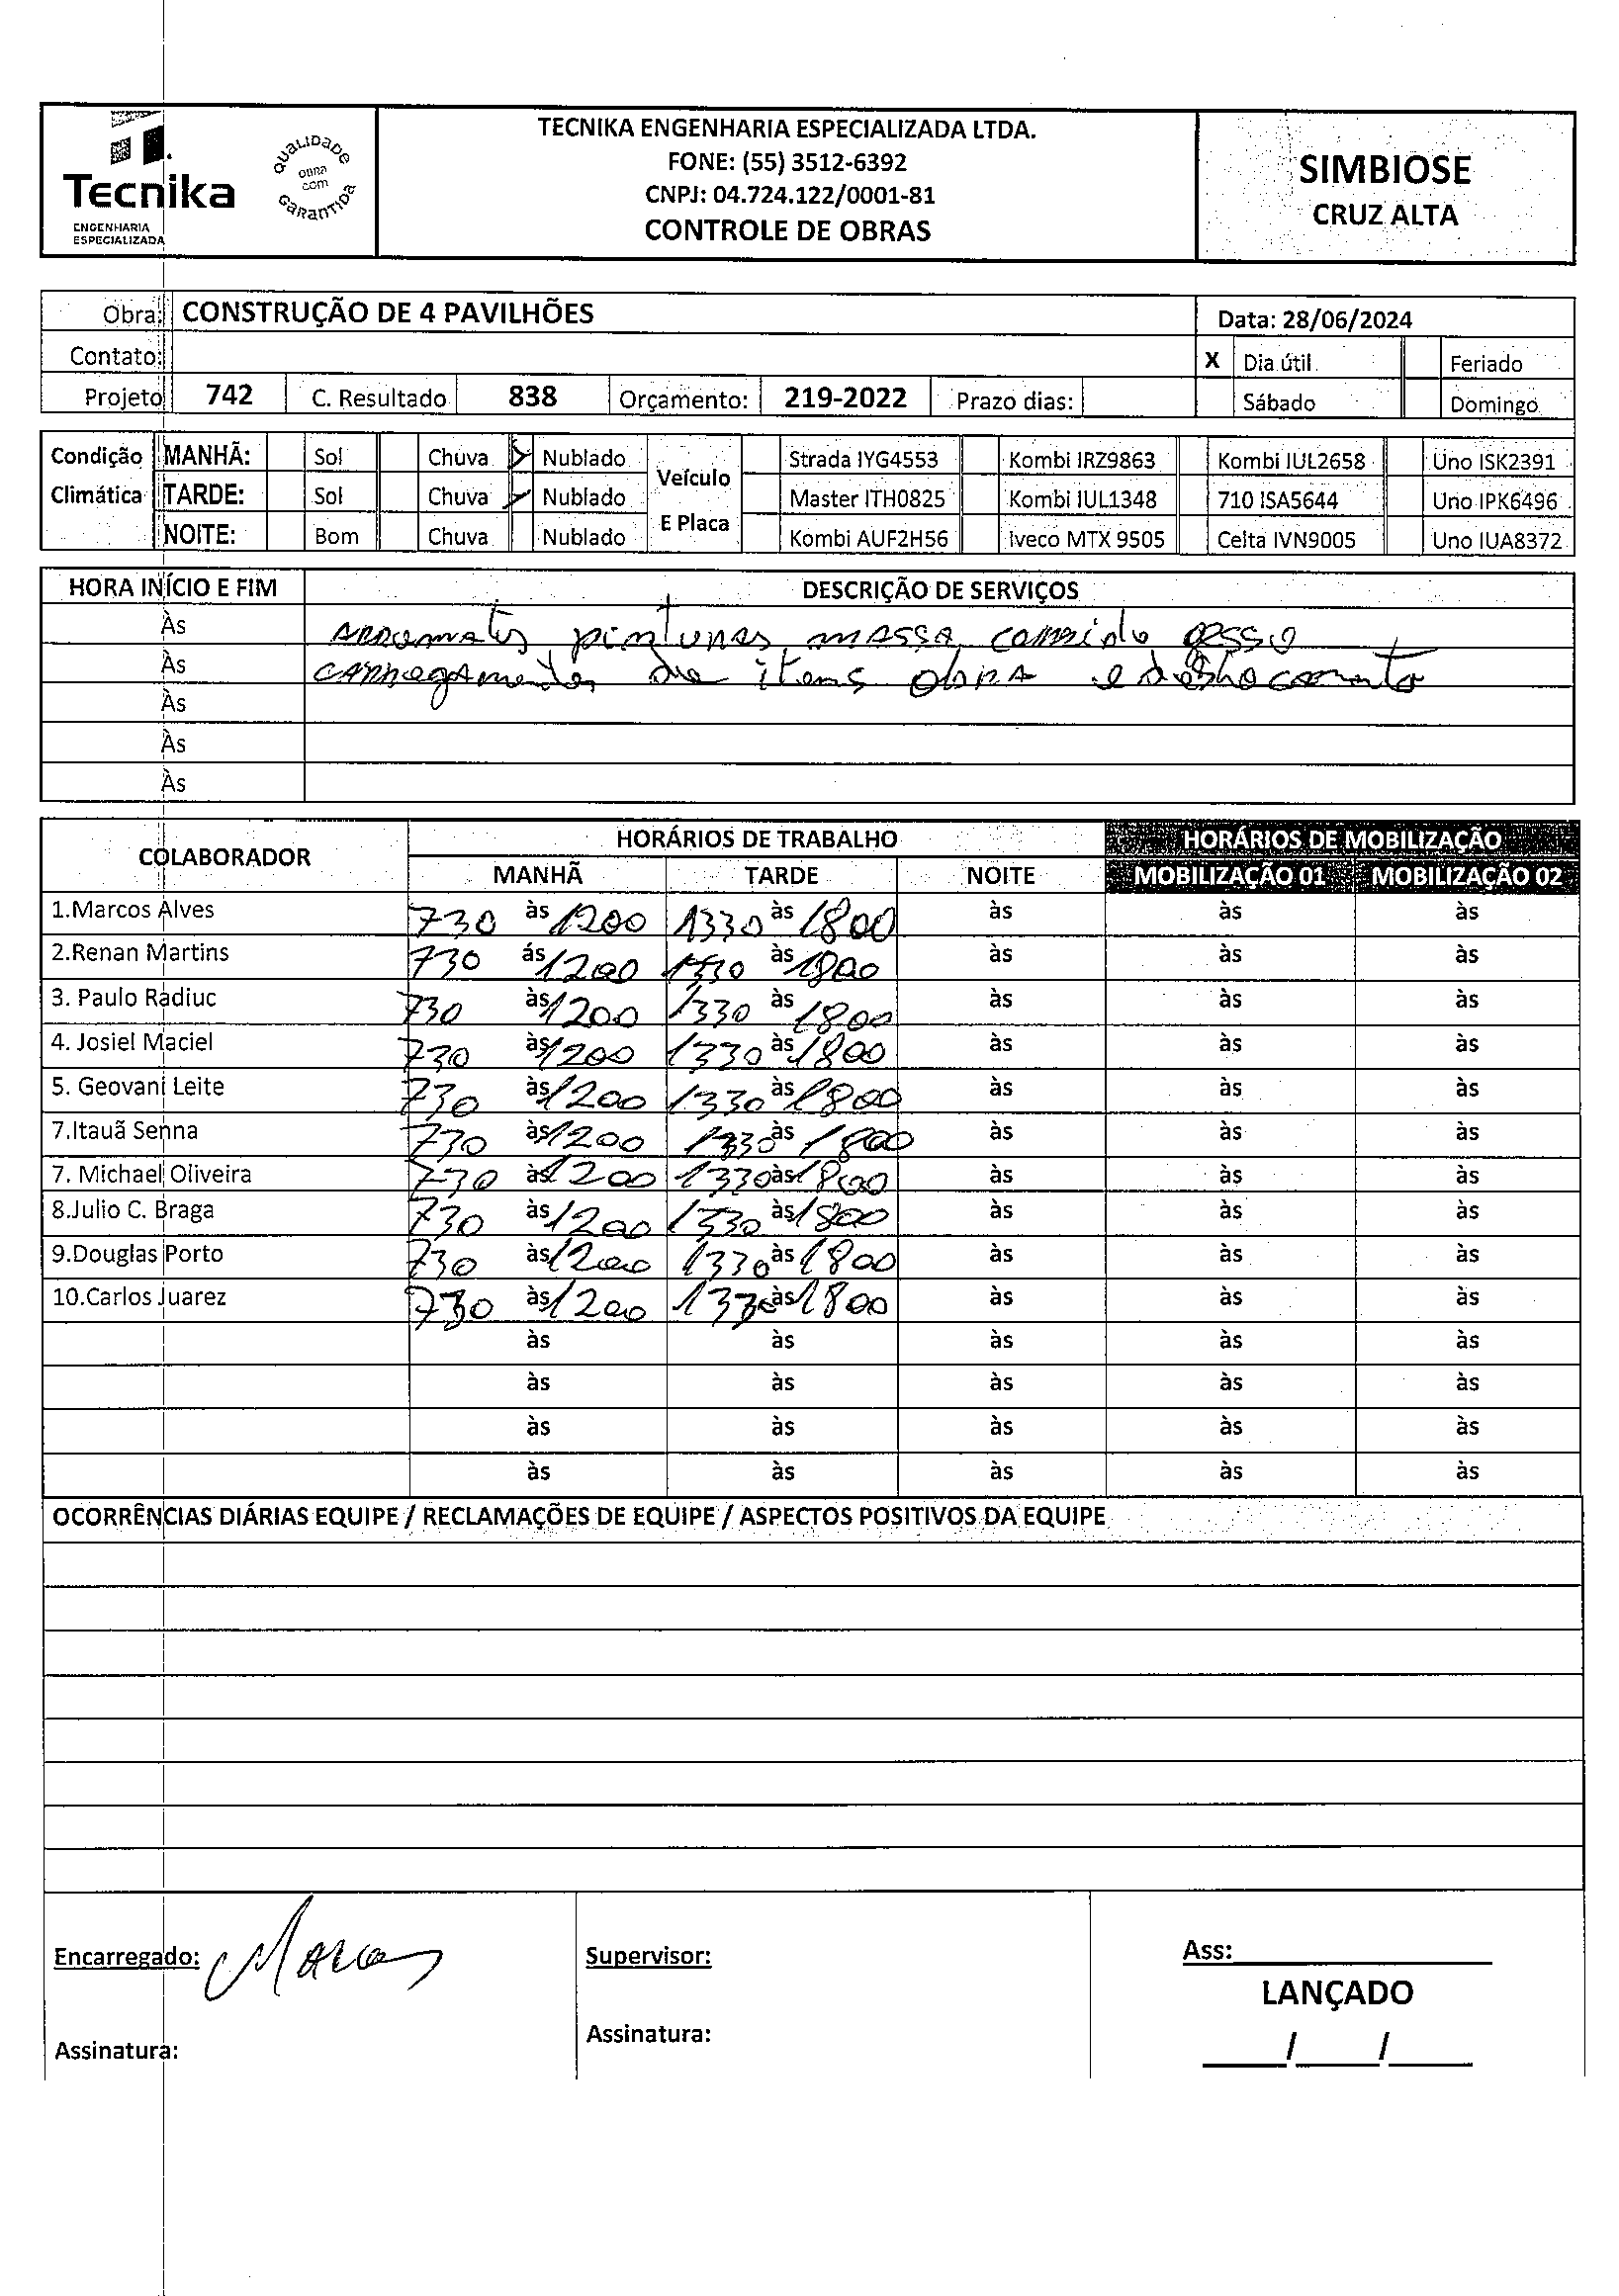 TECNIKA ENGENHARIA ESPECIALIZADA LTDA.
FONE: (55) 3512-6392
CNPJ: 04.724.122/0001-81
CONTROLE DE OBRAS
Tecnika
ENGENHARIA
ESPECIALIZADA
QUALIDADE
OBRA
COM
GARANTIDA
SIMBIOSE
CRUZ ALTA
Obra: CONSTRUÇÃO DE 4 PAVILHÕES Data: 28/06/2024
Contato: X Dia útil Feriado
Projeto 742 C. Resultado 838 Orçamento: 219-2022 Prazo dias: Sábado Domingo
Condição MANHÃ: Sol Chuva Nublado Veículo Strada IYG4553 Kombi IRZ9863 Kombi IUL2658 Uno ISK2391
Climática TARDE: Sol Chuva Nublado E Placa Master ITH0825 Kombi IUL1348 710 ISA5644 Uno IPK6496
NOITE: Bom Chuva Nublado Kombi AUF2H56 Iveco MTX 9505 Celta IVN9005 Uno IUA8372
HORA INÍCIO E FIM DESCRIÇÃO DE SERVIÇOS
Às pinturas massa gesso
Às de itens obra e
Às
Às
Às
COLABORADOR HORÁRIOS DE TRABALHO HORÁRIOS DE MOBILIZAÇÃO
MANHÃ TARDE NOITE MOBILIZAÇÃO 01 MOBILIZAÇÃO 02
1.Marcos Alves 730 às 1200 1330 às 1800 às às às
2.Renan Martins 730 ás 1200 1330 às 1800 às às às
3. Paulo Radiuc 730 às 1200 1330 às 1800 às às às
4. Josiel Maciel 730 às 1200 1330 às 1800 às às às
5. Geovani Leite 730 às 1200 1330 às 1800 às às às
7.Itauã Senna 730 às 1200 1330 às 1800 às às às
7. Michael Oliveira 730 às 1200 1330 às 1800 às às às
8.Julio C. Braga 730 às 1200 1330 às 1800 às às às
9.Douglas Porto 730 às 1200 1330 às 1800 às às às
10.Carlos Juarez 730 às 1200 1330 às 1800 às às às
às às às às às
às às às às às
às às às às às
às às às às às
OCORRÊNCIAS DIÁRIAS EQUIPE / RECLAMAÇÕES DE EQUIPE / ASPECTOS POSITIVOS DA EQUIPE
Encarregado: Marcos Supervisor: Ass:
LANÇADO
Assinatura: Assinatura: / /